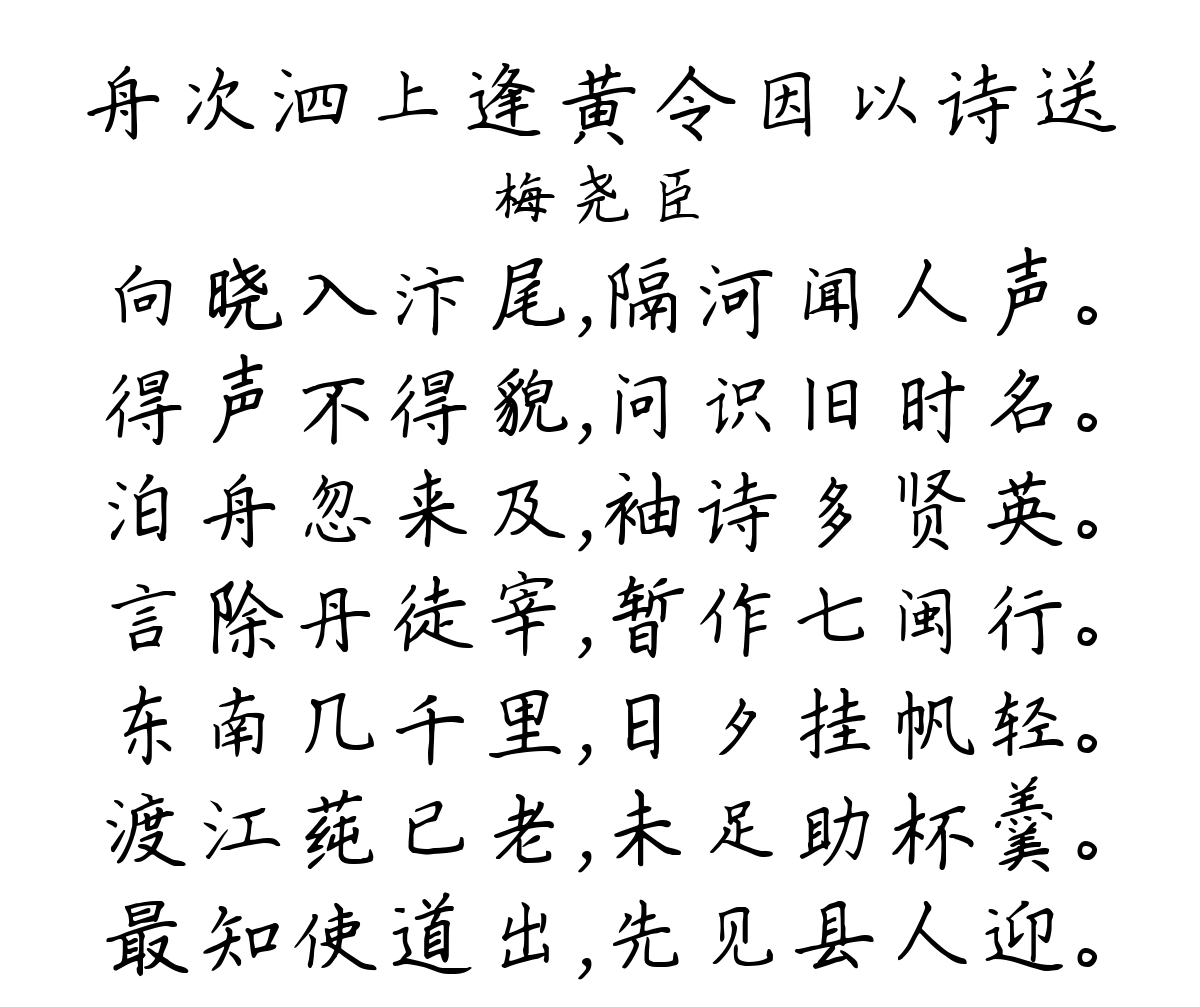 舟次泗上逢黄令因以诗送
梅尧臣
向晓入汴尾,隔河闻人声。
得声不得貌,问识旧时名。
泊舟忽来及,袖诗多贤英。
言除丹徒宰,暂作七闽行。
东南几千里,日夕挂帆轻。
渡江莼已老,未足助杯羹。
最知使道出,先见县人迎。